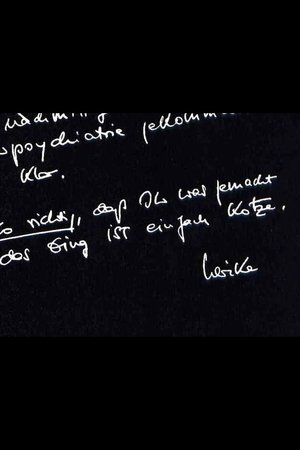 psychiatrie gekomme
klar.
so richtig, daß Ihr was gemacht
das Ding ist einfach Kotze.
Ulrike